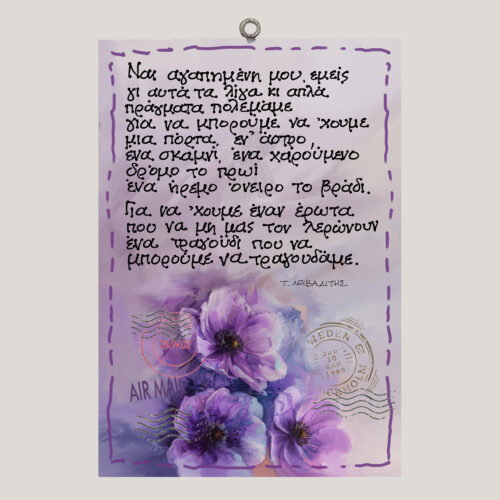 Ναι αγαπημένη μου, εμείς
γι αυτά τα λίγα κι απλά
πράγματα πολεμάμε
για να μπορούμε να 'χουμε
μια πόρτα, εν' άστρο,
ένα σκαμνί, ένα χαρούμενο
δρόμο το πρωί
ένα ήρεμο όνειρο το βράδι.
Για να 'χουμε έναν έρωτα
που να μη μας τον λερώνουν
ένα τραγούδι που να
μπορούμε να τραγουδάμε.
Τ. Λειβαδίτης
WEDEN
Jun
10
1989
KHOLM
AIR MAI